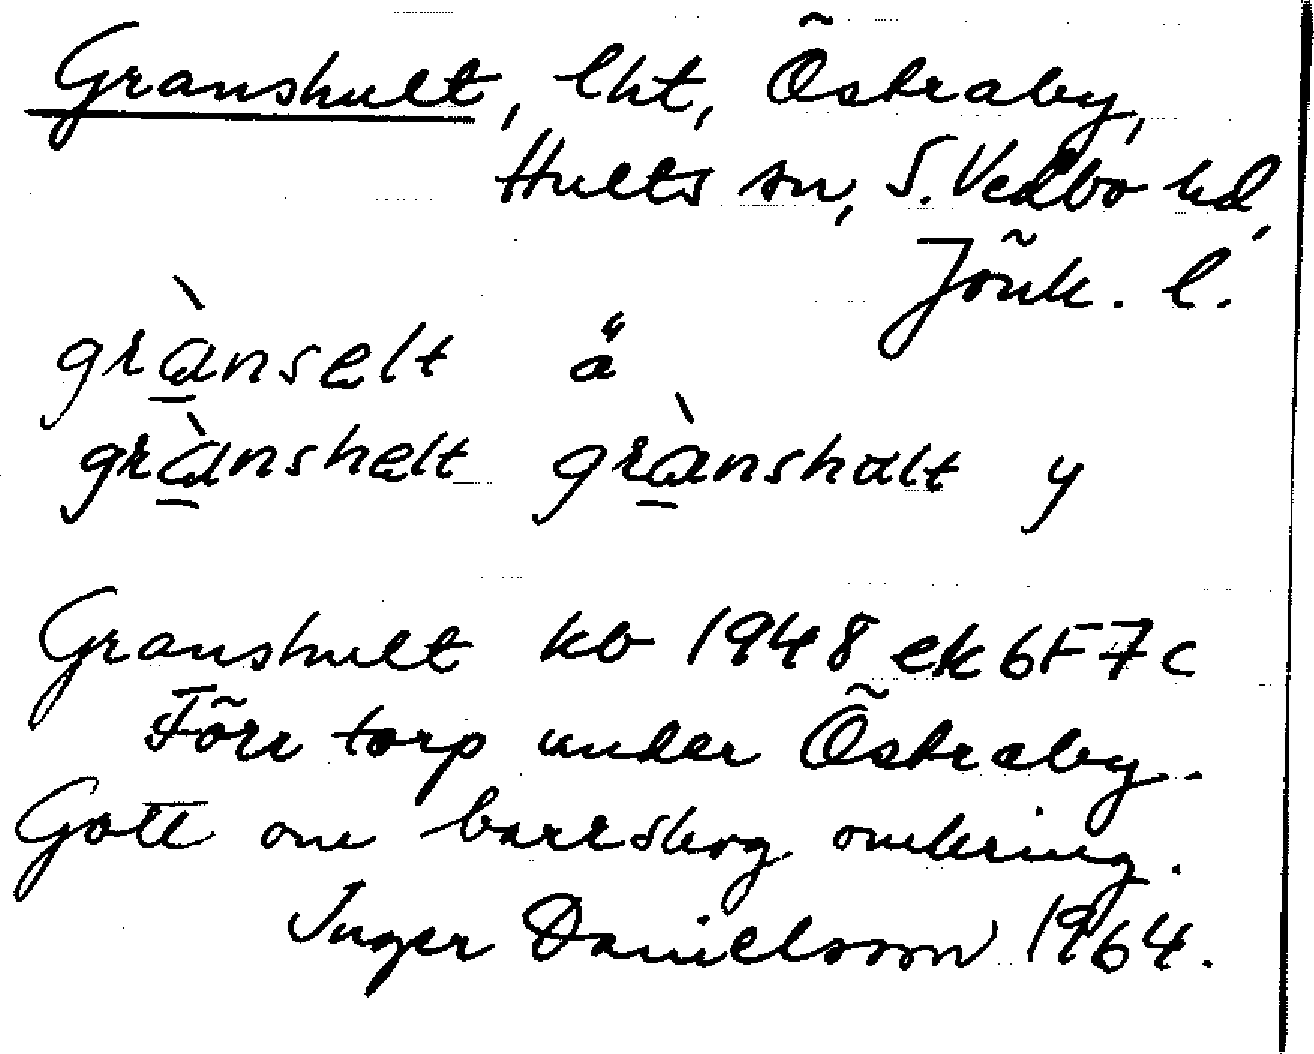 Granshult, lht, Östraby,
Hults sn, S. Vedbo hd,
Jönk. l.
grànselt ä
grànshelt grànshalt y
Granshult kb 1948 ek 6F7c
Förr torp under Östraby.
Gott om barrskog omkring.
Inger Danielsson 1964.